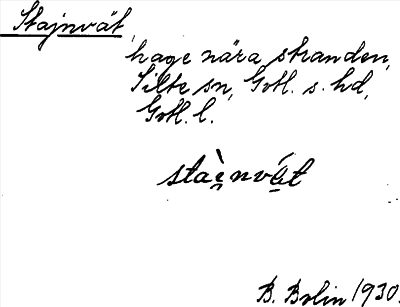 Stajnvät,
hage nära stranden,
Silte sn, Gotl. s. hd,
Gotl. l.
staìnvát
B. Bolin 1930.